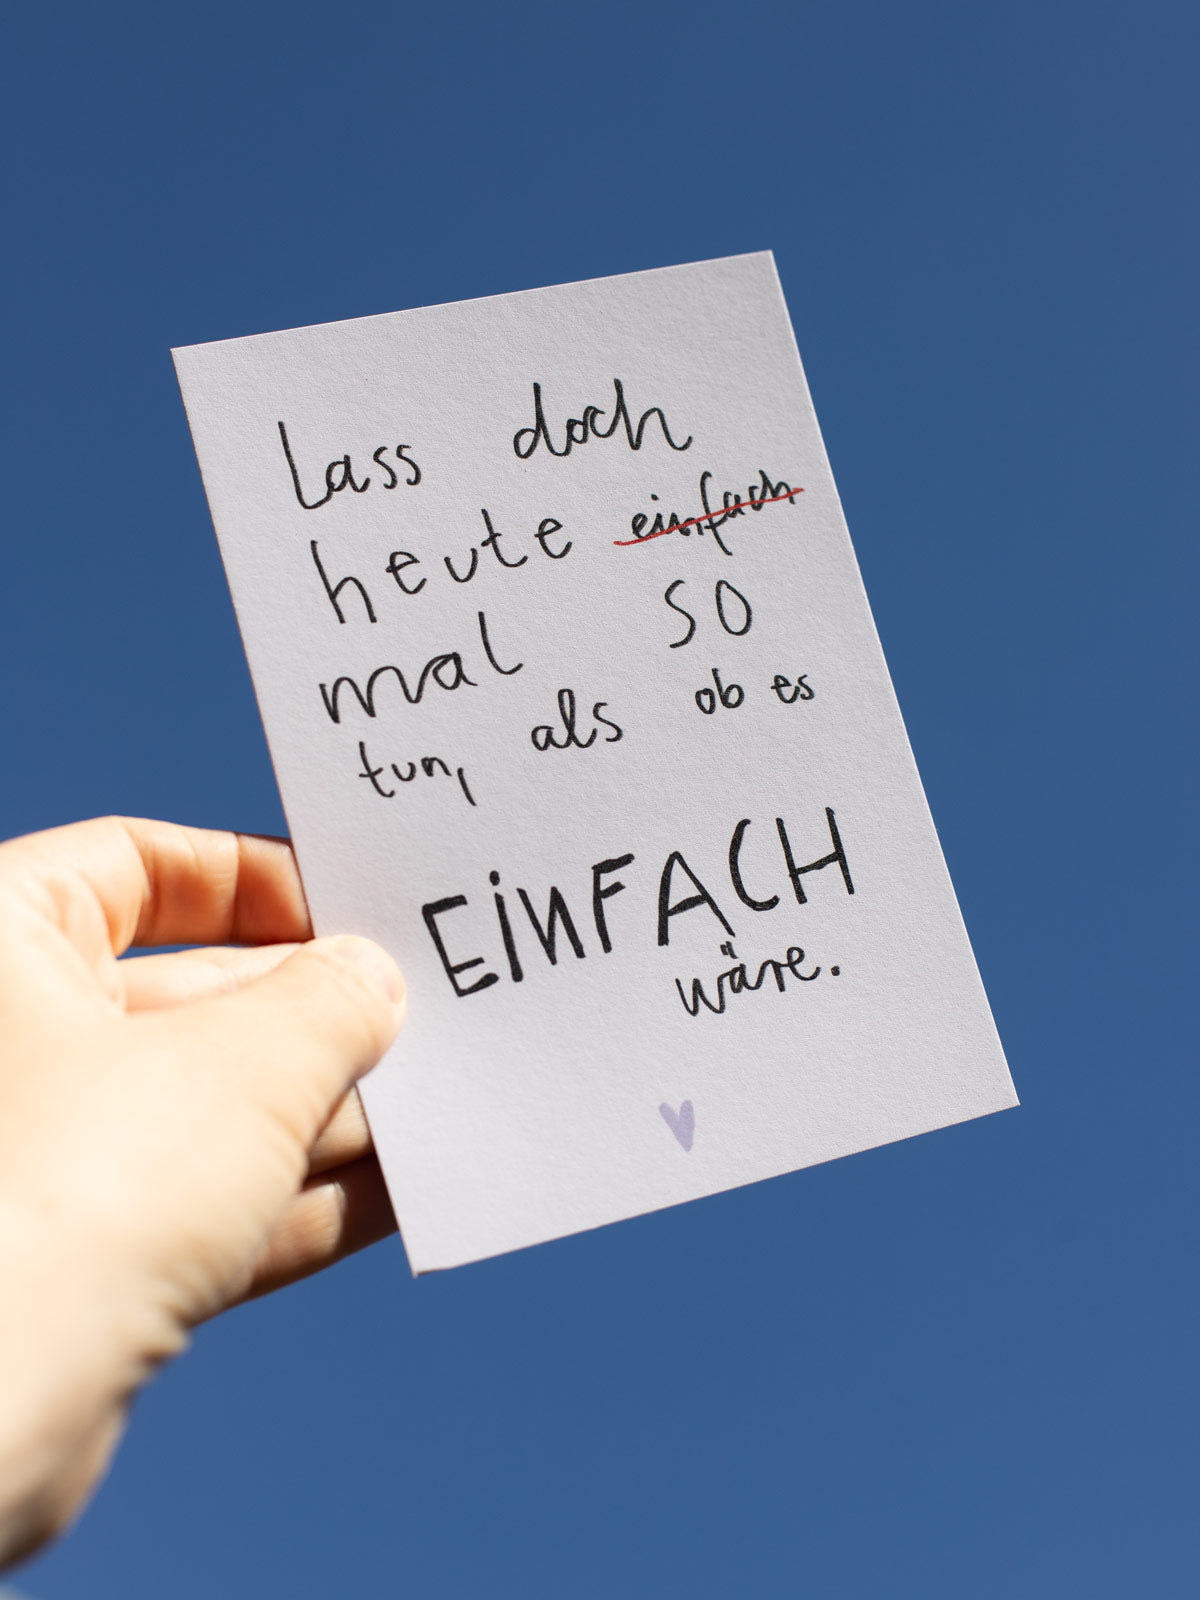 Lass doch
heute einfach
mal so
tun, als ob es
EiNFACH
wäre.